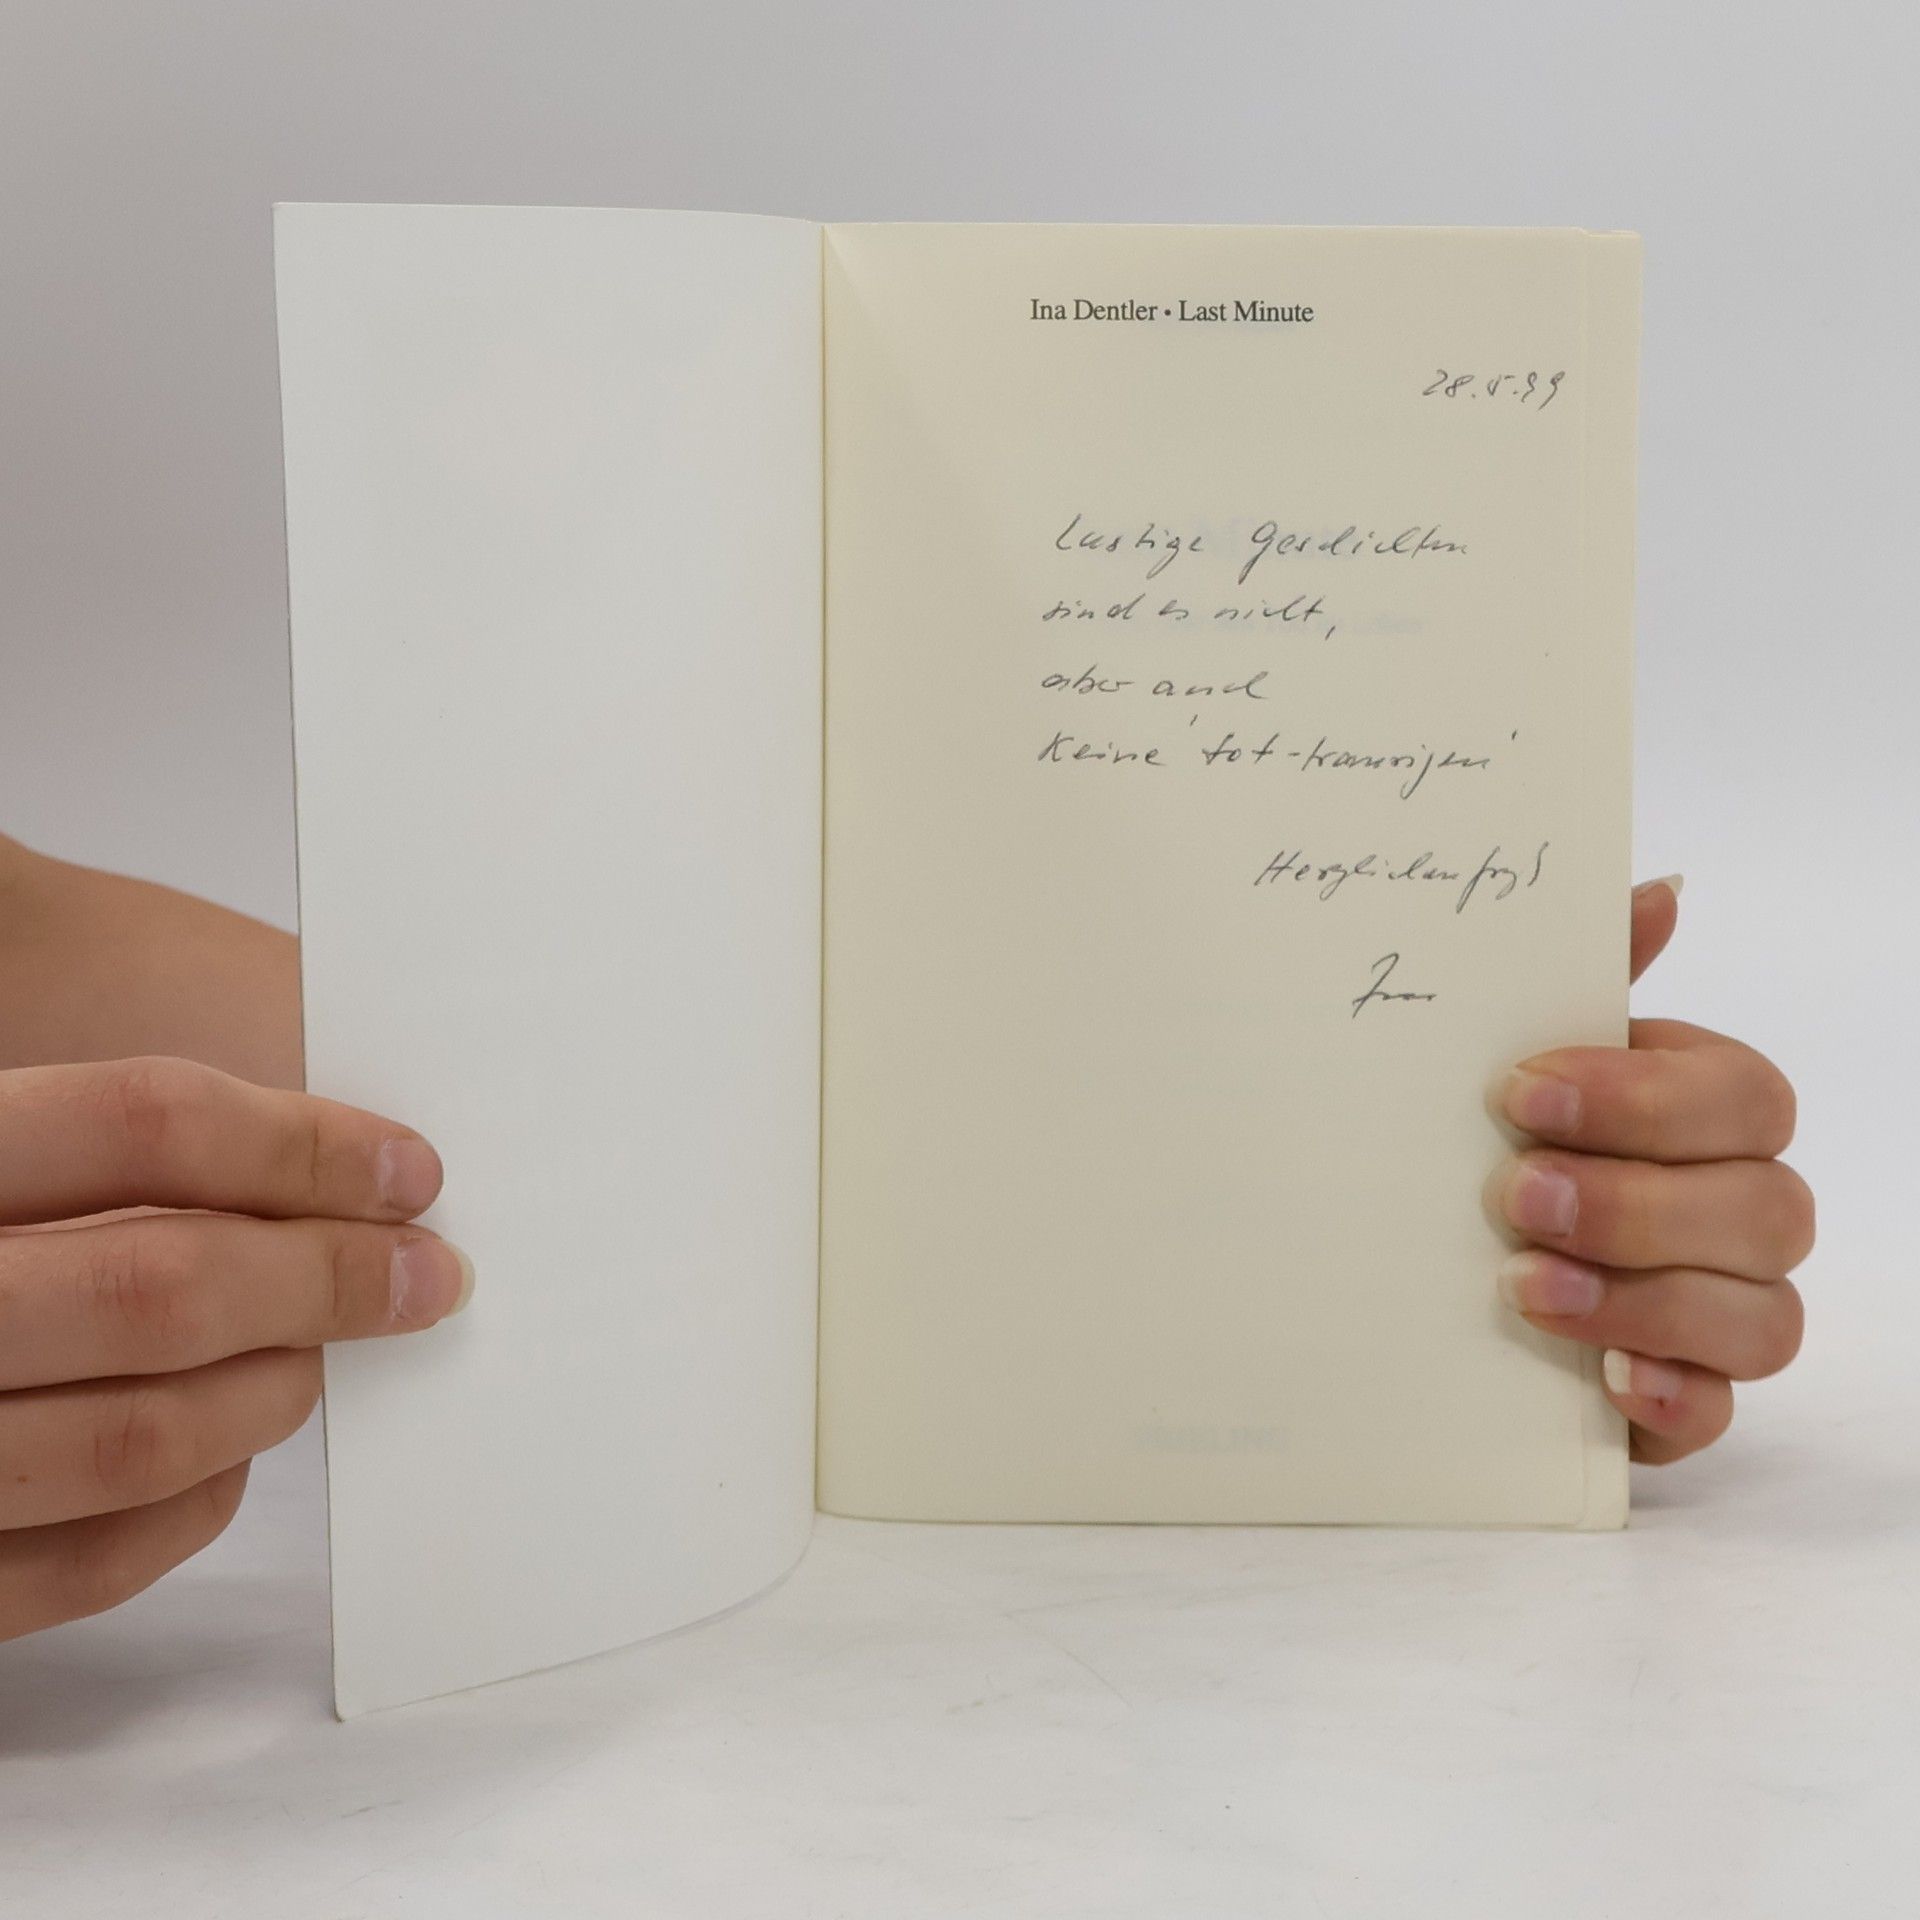 Ina Dentler • Last Minute
28.5.99
Lustige Geschichten
sind es nicht,
aber auch
keine 'tot-traurigen'
Herzlichen Gruß
Ina